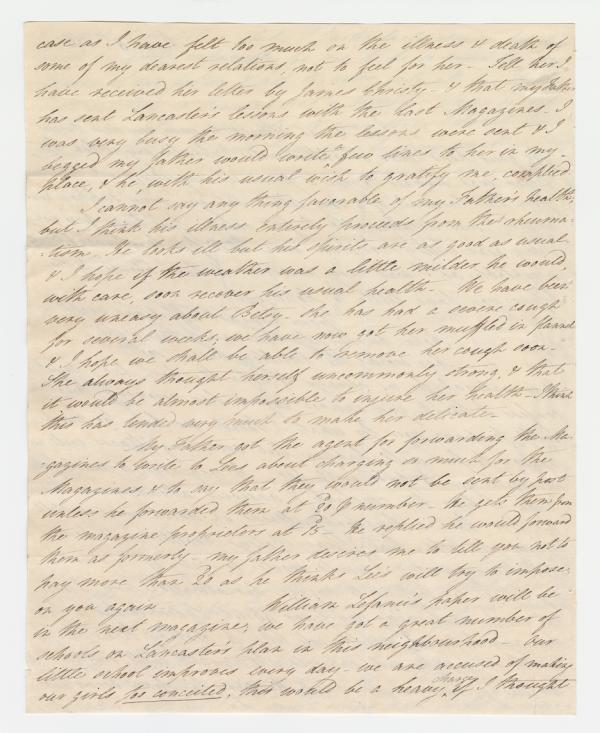 case as I have felt too much on the illness & death of
some of my dearest relations, not to feel for her - Tell her I
have received her letter by James Christy - & that my Father
has sent Lancaster's lessons with the last Magazines. I
was very busy the morning the lessons were sent & I
begged my father would write a few lines to her in my
place, & he, with his usual wish to gratify me, complied
I cannot say any thing favorable of my Father's health,
but I think his illness entirely proceeds from the rheuma-
-tism. He looks ill but his spirits are as good as usual
& I hope if the weather was a little milder he would,
with care, soon recover his usual health - We have been
very uneasy about Betsy - she has had a severe cough
for several weeks, we have now got her muffled in flannel
& I hope we shall be able to remove her cough soon -
She always thought herself uncommonly strong, & that
it would be almost impossible to injure her health - I think
this has tended very much to make her delicate -
My Father got the agent for forwarding the Ma-
-gazines to write to about charging so much for the
Magazines & to say that they would not be sent by post
unless he forwarded them at 20 number - He gets them from
the magazine proprietors at 15 - He replied he would forward
them as formerly - my father desires me to tell you not to
pay more than 20 as he thinks will try to impose
on you again William Lefanu's paper will be
in the next magazine; we have got a great number of
schools on Lancaster's plan in this neighbourhood - Our
little school improves every day - we are accused of making
our girls too conceited, this would be a heavy charge, if I thought